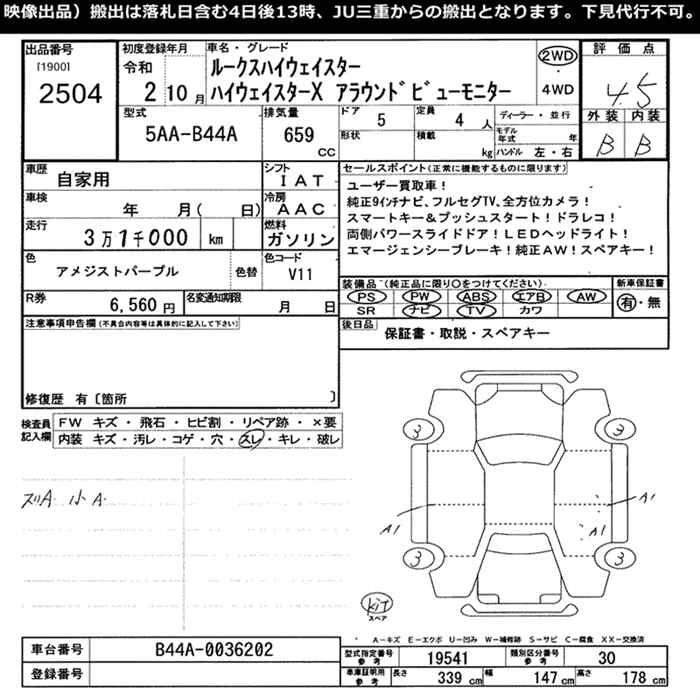 映像出品）搬出は落札日含む4日後13時、JU三重からの搬出となります。下見代行不可。
出品番号
[1900]
2504
初度登録年月
令和
2 10月
車名・グレード
ルークスハイウェイスター
ハイウェイスターX アラウンドビューモニター
2WD
4WD
評価点
4.5
外装 内装
B B
型式
5AA-B44A
排気量
659
CC
ドア
5
定員
4 人
形状
積載
kg
ディーラー・並行
モデル年式 年
ハンドル 左・右
車歴
自家用
シフト
IAT
車検
年 月( 日)
冷房
AAC
走行
3万1千000 km
燃料
ガソリン
色
アメジストパープル
色替
色コード
V11
R券
6,560 円
名変通知期限
月 日
セールスポイント(正常に機能するものに限ります)
ユーザー買取車！
純正9インチナビ、フルセグTV、全方位カメラ！
スマートキー＆プッシュスタート！ドラレコ！
両側パワースライドドア！LEDヘッドライト！
エマージェンシーブレーキ！純正AW！スペアキー！
装備品(純正品に限り○をつけてください)
PS PW ABS エアB AW
SR ナビ TV カワ
新車保証書
有・無
後日品
保証書・取説・スペアキー
注意事項申告欄(不具合内容等は具体的に記入して下さい)
修復歴 有〔箇所 〕
検査員記入欄
FW キズ・飛石・ヒビ割・リペア跡・×要
内装 キズ・汚レ・コゲ・穴・スレ・キレ・破レ
スリA 小A
3 3
A1 A1 A1
3 3
kit
スペア
A－キズ E－エクボ U－凹み W－補修跡 S－サビ C－腐食 XX－交換済
車台番号
B44A-0036202
登録番号
型式指定番号
参考
19541
類別区分番号
参考
30
車庫証明用
参考
長さ 339 cm 幅 147 cm 高さ 178 cm